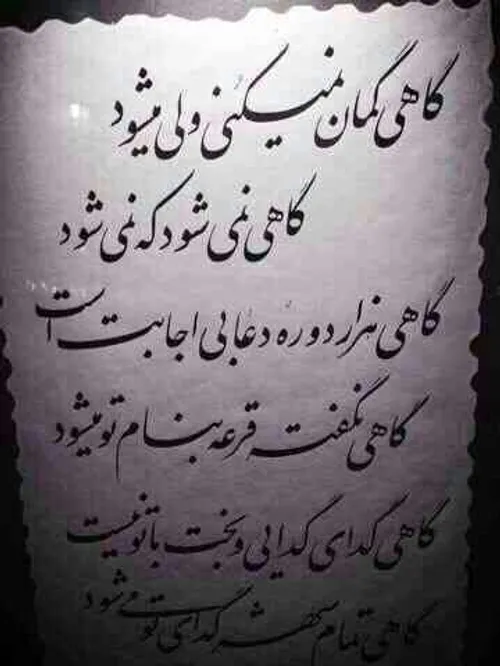 گاهی گمان نمیکنی ولی میشود
گاهی نمی شود که نمی شود
گاهی هزار دوره دعا بی اجابت است
گاهی نگفته قرعه بنام تو میشود
گاهی گدای گدایی و بخت با تو نیست
گاهی تمام شهر گدای تو میشود